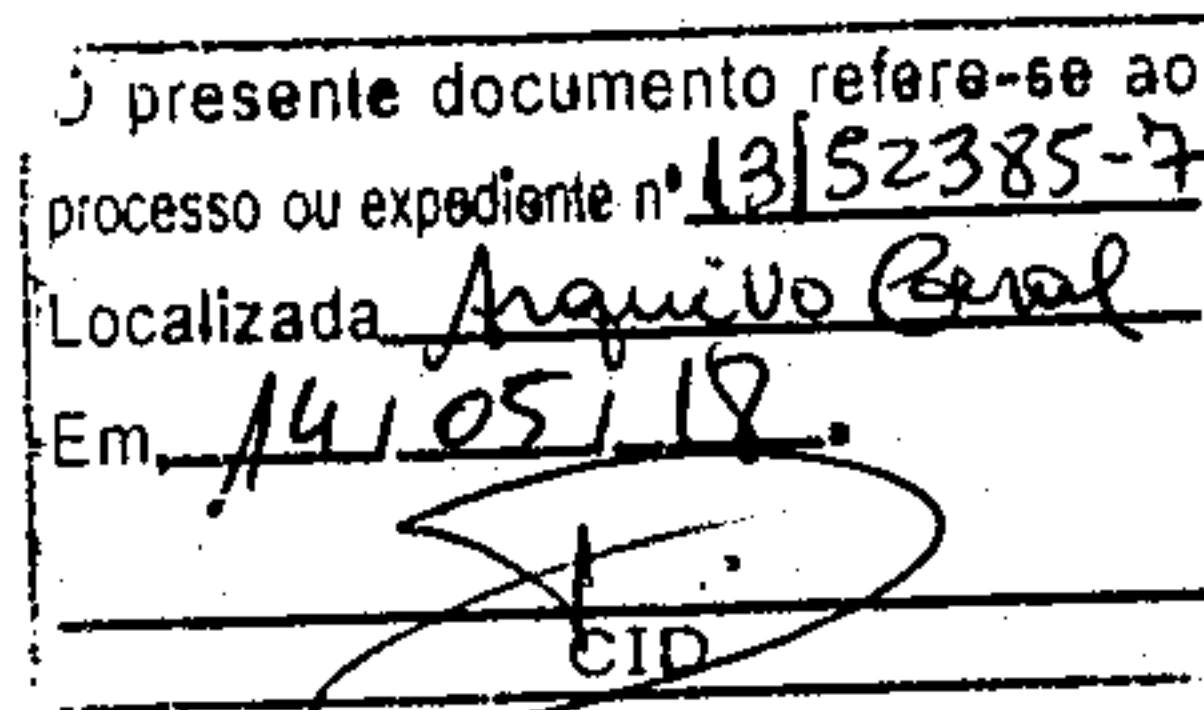 O presente documento refere-se ao
processo ou expediente nº 13/52385-7
Localizada Arquivo Geral
Em 14/05/18.
CID